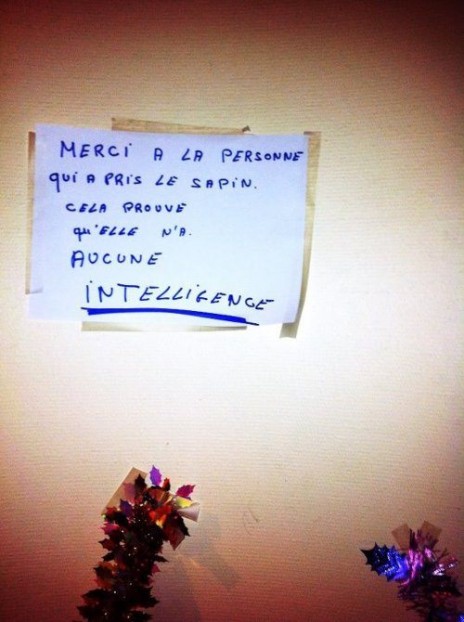 MERCI A LA PERSONNE
QUI A PRIS LE SAPIN.
CELA PROUVE
QU'ELLE N'A.
AUCUNE
INTELLIGENCE